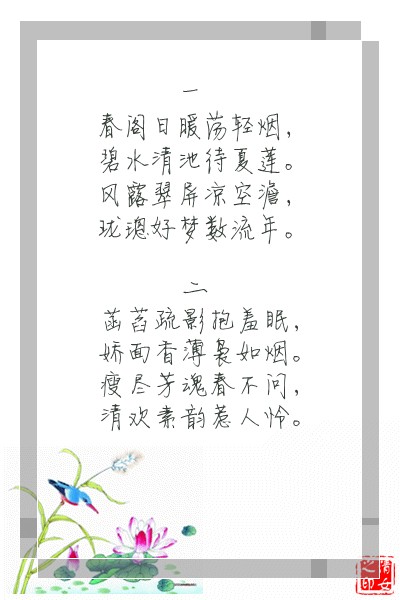 一
春阁日暖荡轻烟，
碧水清池待夏莲。
风露翠屏凉空澹，
珑璁好梦数流年。
二
菡萏疏影抱羞眠，
娇面香薄袅如烟。
瘦尽芳魂春不问，
清欢素韵惹人怜。